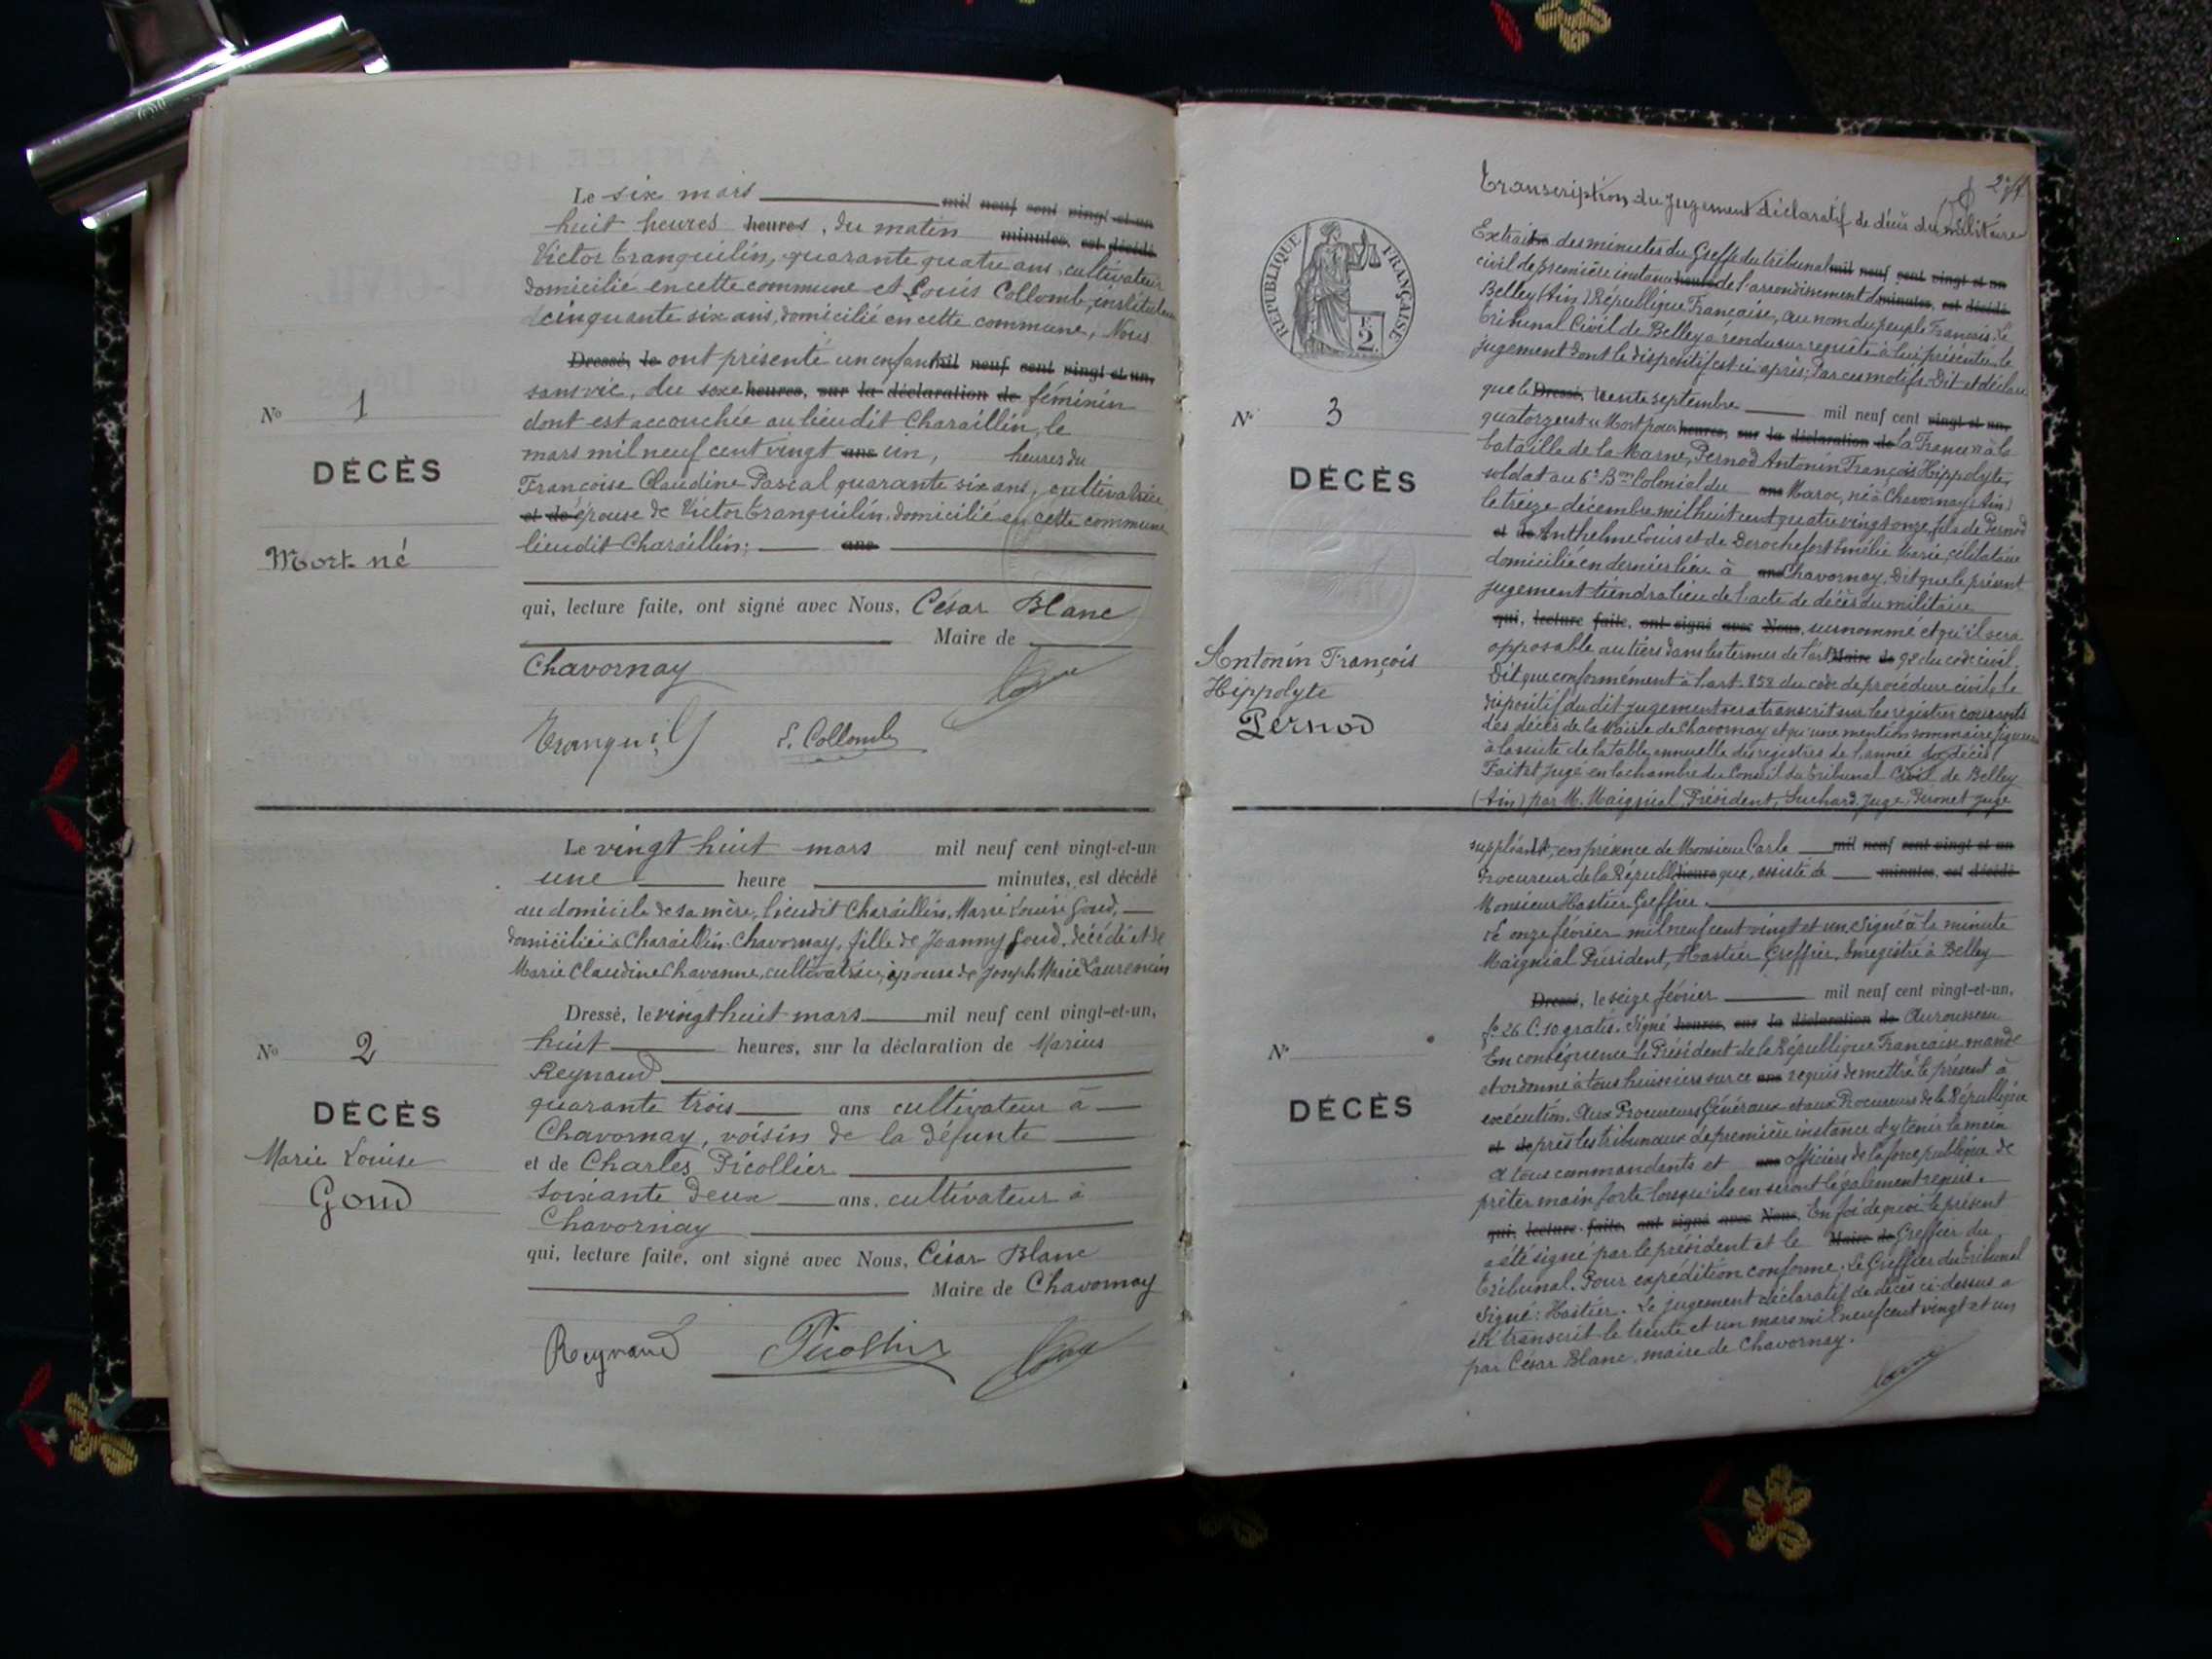 Le six mars mil neuf cent vingt-et-un
huit heures heures, du matin minutes, est décédé
Victor Tranquilin, quarante quatre ans, cultivateur
domicilié en cette commune et Louis Collomb, instituteur
cinquante six ans, domicilié en cette commune, Nous
Dressé, le ont présenté un enfant mil neuf cent vingt-et-un,
sans vie, du sexe heures, sur la déclaration de féminin
dont est accouchée au lieu dit Charaillin, le
mars mil neuf cent vingt ans un, heures du
Françoise Claudine Pascal quarante six ans, cultivatrice
et de épouse de Victor Tranquilin, domicilié en cette commune
lieu dit Charaillin; ans
qui, lecture faite, ont signé avec Nous, César Blanc
Maire de
Chavornay
Tranquil
L. Collomb
N° 1
DÉCÈS
Mort-né
Le vingt huit mars mil neuf cent vingt-et-un
une heure minutes, est décédé
au domicile de sa mère, lieu dit Charaillin, Marie Louise Goud,
domiciliée à Charaillin-Chavornay, fille de Joanny Goud, décédé et de
Marie Claudine Chavanne, cultivatrice, épouse de Joseph Marie Laurencin
Dressé, le vingt huit mars mil neuf cent vingt-et-un,
huit heures, sur la déclaration de Marius
Reynaud
quarante trois ans cultivateur à
Chavornay, voisin de la défunte
et de Charles Picollier
soixante deux ans, cultivateur à
Chavornay
qui, lecture faite, ont signé avec Nous, César Blanc
Maire de Chavornay
Reynaud
Picollier
N° 2
DÉCÈS
Marie Louise
Goud
Transcription du Jugement déclaratif de décès du militaire
RÉPUBLIQUE FRANÇAISE
2
Extrait des minutes du Greffe du tribunal mil neuf cent vingt et un
civil de première instance heures de l'arrondissement d minutes, est décédé
Belley (Ain) République Française, au nom du peuple Français. Le
tribunal Civil de Belley a rendu sur requête à lui présentée le
jugement dont le dispositif est ci-après: Par ces motifs. Dit et déclare
que le Dressé, le trente septembre mil neuf cent vingt et un,
quatorze est "Mort pour heures, sur la déclaration de la France" à la
bataille de la Marne, Pernod Antonin François Hippolyte,
soldat au 6e Bon Colonial du ans Maroc, né à Chavornay (Ain)
le treize décembre mil huit cent quatre vingt onze, fils de Pernod
et de Anthelme Louis et de Derochefort Emélie Marie, célibataire
domicilié en dernier lieu à ans Chavornay. Dit que le présent
jugement tiendra lieu de l'acte de décès du militaire
qui, lecture faite, ont signé avec Nous, susnommé et qu'il sera
opposable au tiers dans les termes de l'art Maire de 92 du code civil.
Dit que conformément à l'art. 858 du code de procédure civile, le
dispositif du dit jugement sera transcrit sur les registres courants
des décès de la Mairie de Chavornay et qu'une mention sommaire figurera
à la suite de la table annuelle des registres de l'année du décès
Fait et jugé en la chambre du Conseil du tribunal Civil de Belley
(Ain) par M. Maignial, Président, Suchard Juge, Peronet Juge
N° 3
DÉCÈS
Antonin François
Hippolyte
Pernod
suppléant, en présence de Monsieur Carle mil neuf cent vingt et un
Procureur de la Républi heure que, assisté de minutes, est décédé
Monsieur Hastier Greffier.
le onze février mil neuf cent vingt et un. Signé à la minute
Maignial Président, Hastier Greffier, Enregistré à Belley
Dressé, le seize février mil neuf cent vingt-et-un,
fo 26 C. 10 gratis. Signé heures, sur la déclaration de Aurousseau
En conséquence le Président de la République Française mande
et ordonne à tous huissiers sur ce ans requis de mettre le présent à
exécution. Aux Procureurs Généraux et aux Procureurs de la République
et de près les tribunaux de première instance d'y tenir la main
A tous commandants et ans officiers de la force publique de
prêter main forte lorsqu'ils en seront légalement requis.
qui, lecture faite, ont signé avec Nous, En foi de quoi le présent
a été signé par le président et le Maire de Greffier du
tribunal. Pour expédition conforme. Le Greffier du tribunal
signé: Hastier. Le jugement déclaratif de décès ci-dessus a
été transcrit le trente et un mars mil neuf cent vingt et un
par César Blanc, maire de Chavornay.
N°
DÉCÈS